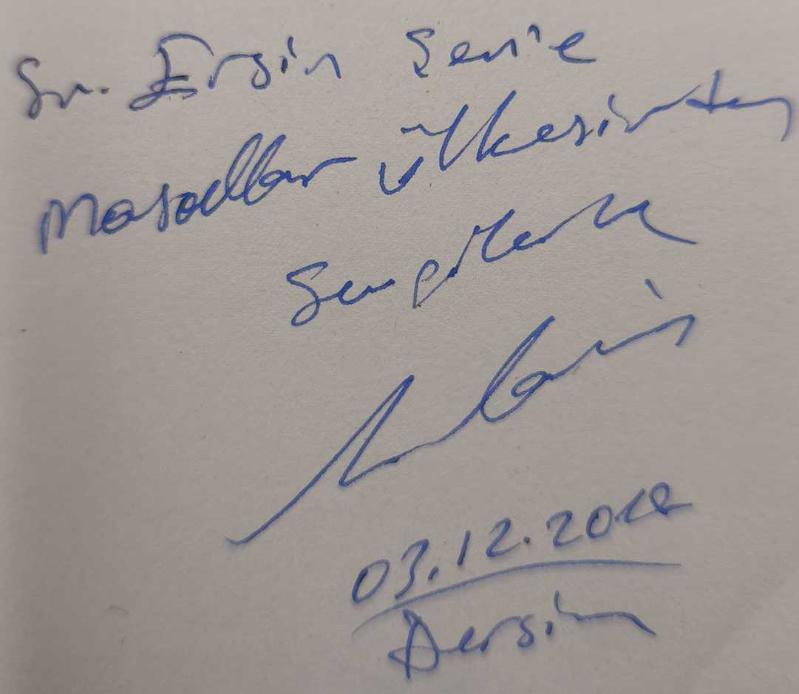 Sn. Ersin Şen'e
Masallar Ülkesinden
Sevgilerle
03.12.2018
Dersim